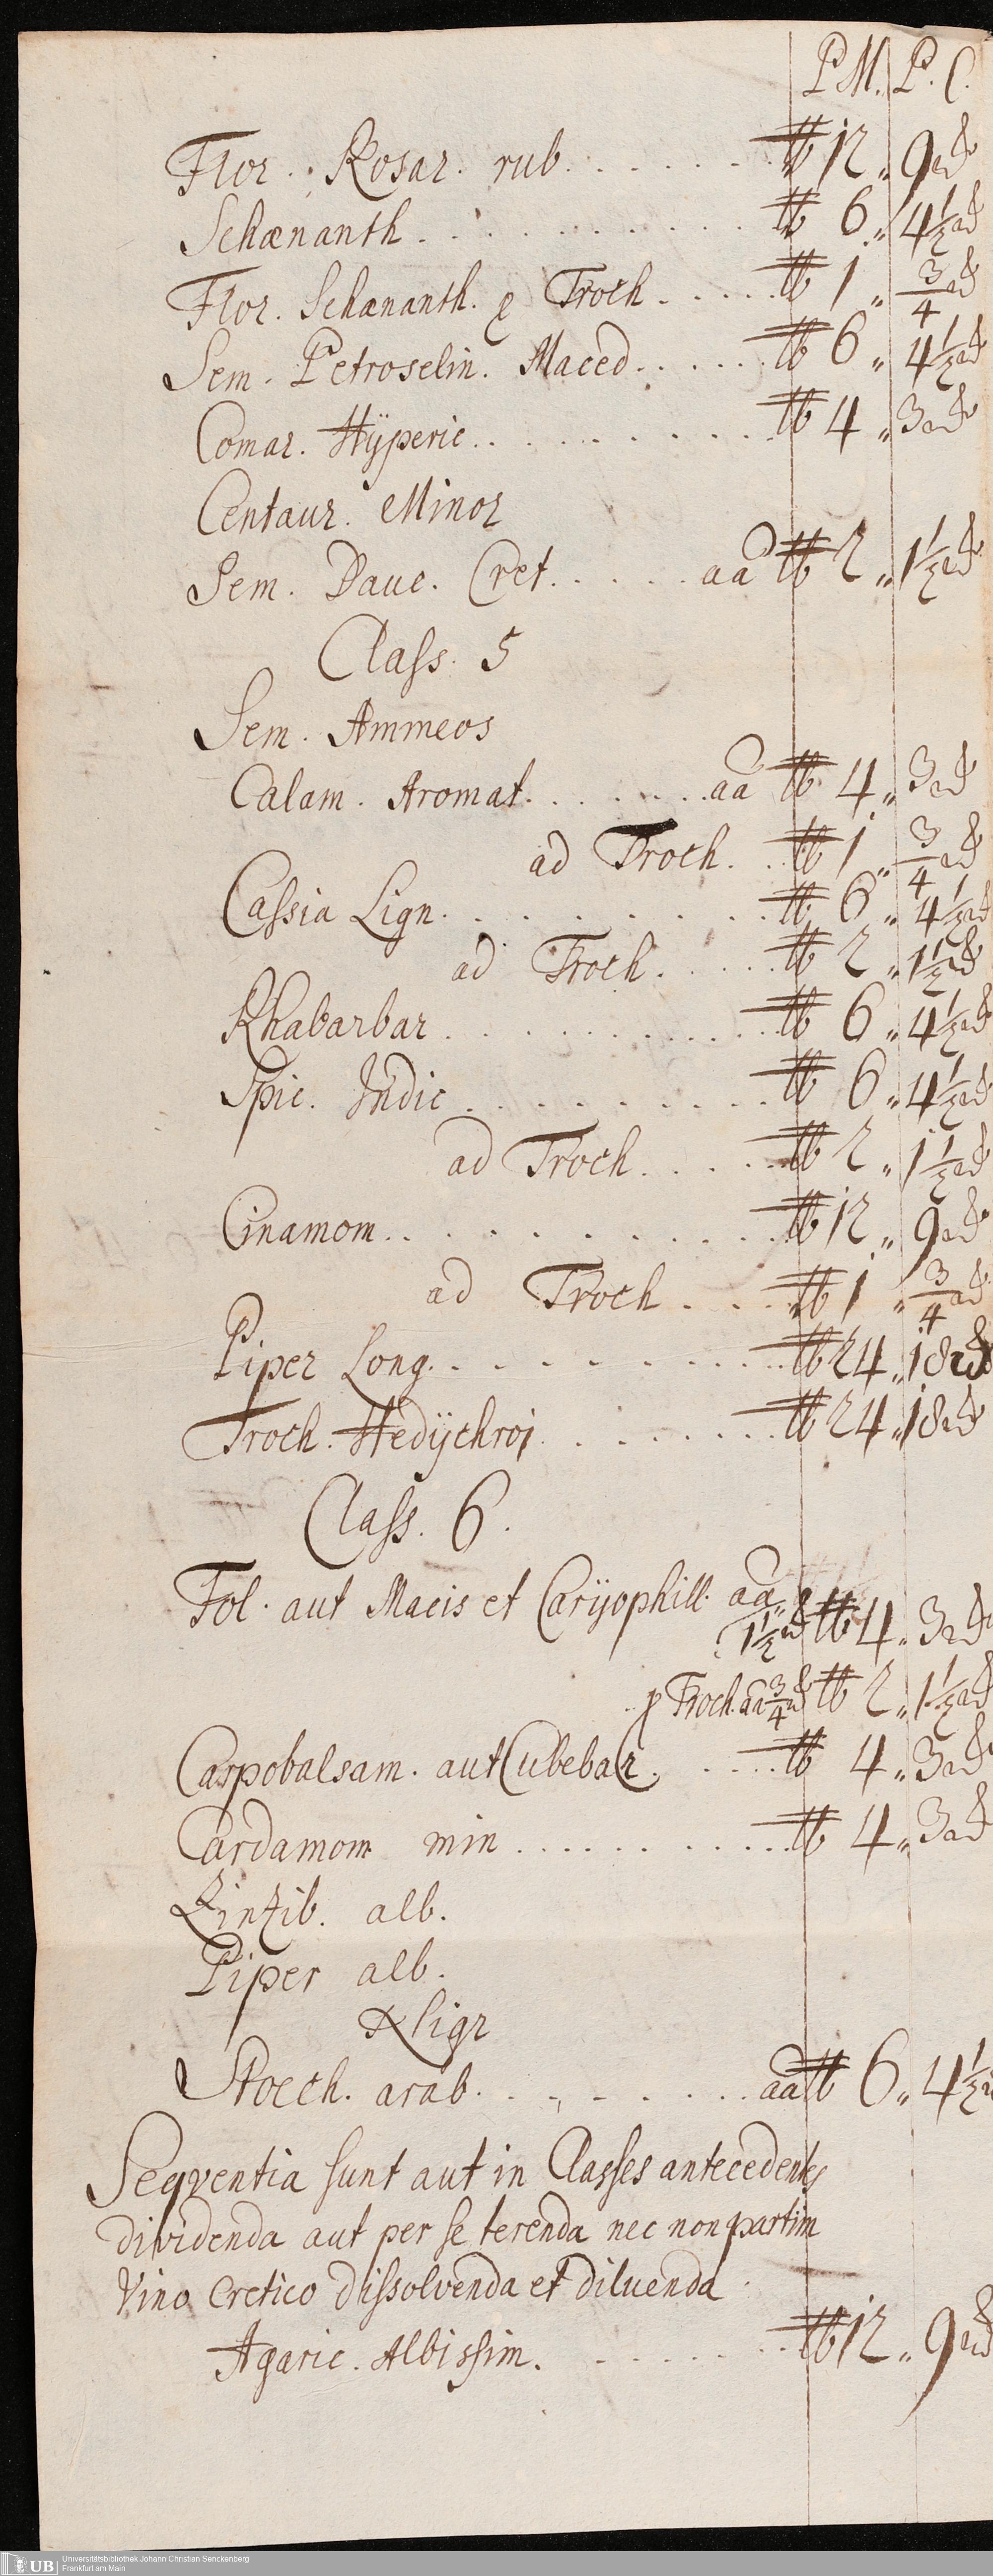 P M. P. C.
Flor. Rosar. rub. . . . . . . ℔ 12 „ 9 ₰
Schœnanth . . . . . . . . . . ℔ 6 „ 4½ ₰
Flor. Schœnanth. p Troch . . . . . ℔ 1 „ 3/4 ₰
Sem. Petroselin. Maced . . . . . . ℔ 6 „ 4½ ₰
Comar. Hÿperic . . . . . . . . . ℔ 4 „ 3 ₰
Centaur. Minor
Sem. Dauc. Cret. . . . . . aa ℔ 2 „ 1½ ₰
Class. 5
Sem. Ammeos
Calam. Aromat. . . . . . . aa ℔ 4 „ 3 ₰
ad Troch. . . ℔ 1 „ 3/4 ₰
Cassia Lign. . . . . . . . . . ℔ 6 „ 4½ ₰
ad Troch. . . . . . ℔ 2 „ 1½ ₰
Rhabarbar . . . . . . . . . . ℔ 6 „ 4½ ₰
Spic. Indic . . . . . . . . . ℔ 6 „ 4½ ₰
ad Troch. . . . . ℔ 2 „ 1½ ₰
Cinamom. . . . . . . . . . . ℔ 12 „ 9 ₰
ad Troch . . . . ℔ 1 „ 3/4 ₰
Piper Long. . . . . . . . . . ℔ 24 „ 18 ₰
Troch. Hedÿchroi . . . . . . . ℔ 24 „ 18 ₰
Class. 6.
Fol. aut Macis et Carÿophill. aa
1½ ₰ ℔ 4 „ 3 ₰
p Troch. aa 3/4 ₰ ℔ 2 „ 1½ ₰
Carpobalsam. aut Cubebar. . . . . . ℔ 4 „ 3 ₰
Cardamom min . . . . . . . . . ℔ 4 „ 3 ₰
Zinzib. alb.
Piper alb.
& Nigr
Stoech. arab. . . . . . . . . aa ℔ 6 „ 4½
Seqventia sunt aut in Classes antecedentes
dividenda aut per se terenda nec non partim
Vino Cretico dissolvenda et diluenda.
Agaric. Albissim. . . . . . . ℔ 12 „ 9 ₰
UB Universitätsbibliothek Johann Christian Senckenberg
Frankfurt am Main